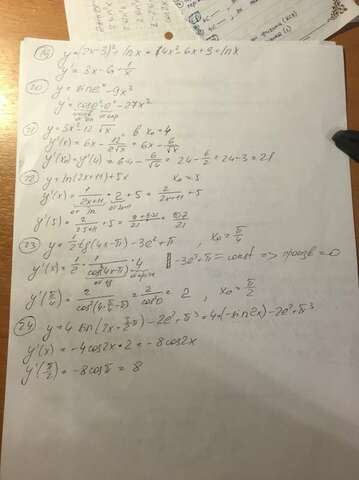 19 y=(2x-3)²-lnx = (4x²-6x+9-lnx
y'= 3x-6-1/x
20 y=sin eˣ-9x³
y'=cos eˣ·eˣ-27x²
21 y=3x²-12√x в x₀=4
y'(x)=6x-12/2√x=6x-6/√x
y'(x₀)=y'(4)=6·4-6/√4=24-6/2=24-3=21
22 y=ln(2x+11)+5x x₀=5
y'(x)=1/(2x+11)·2+5=2/(2x+11)+5
y'(5)=2/(2·5+11)+5=
23 y=1/2 tg(4x-π)-3e²+π, x₀=π/4
y'(x)=1/2·1/cos²(4x-π)·4 -3e²+π=const => произв=0
y'(π/4)=2/cos²(4·π/4-π)=2/cos0=2, x₀=π/2
24 y=4 sin(2x-)-2e²+π³=4·(-sin2x)-2e²+π³
y'(x)=-4cos2x·2=-8cos2x
y'(π/2)=-8cosπ=8